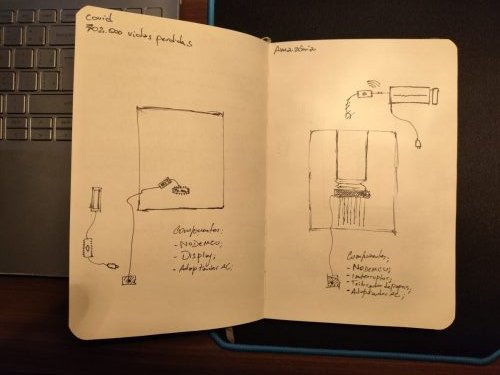 Covid
702.000 vidas perdidas
Componentes:
- NODEMCU;
- Display;
- Adaptador AC;
Amazônia
Componentes:
- NODEMCU;
- Interruptor;
- Adaptador AC;